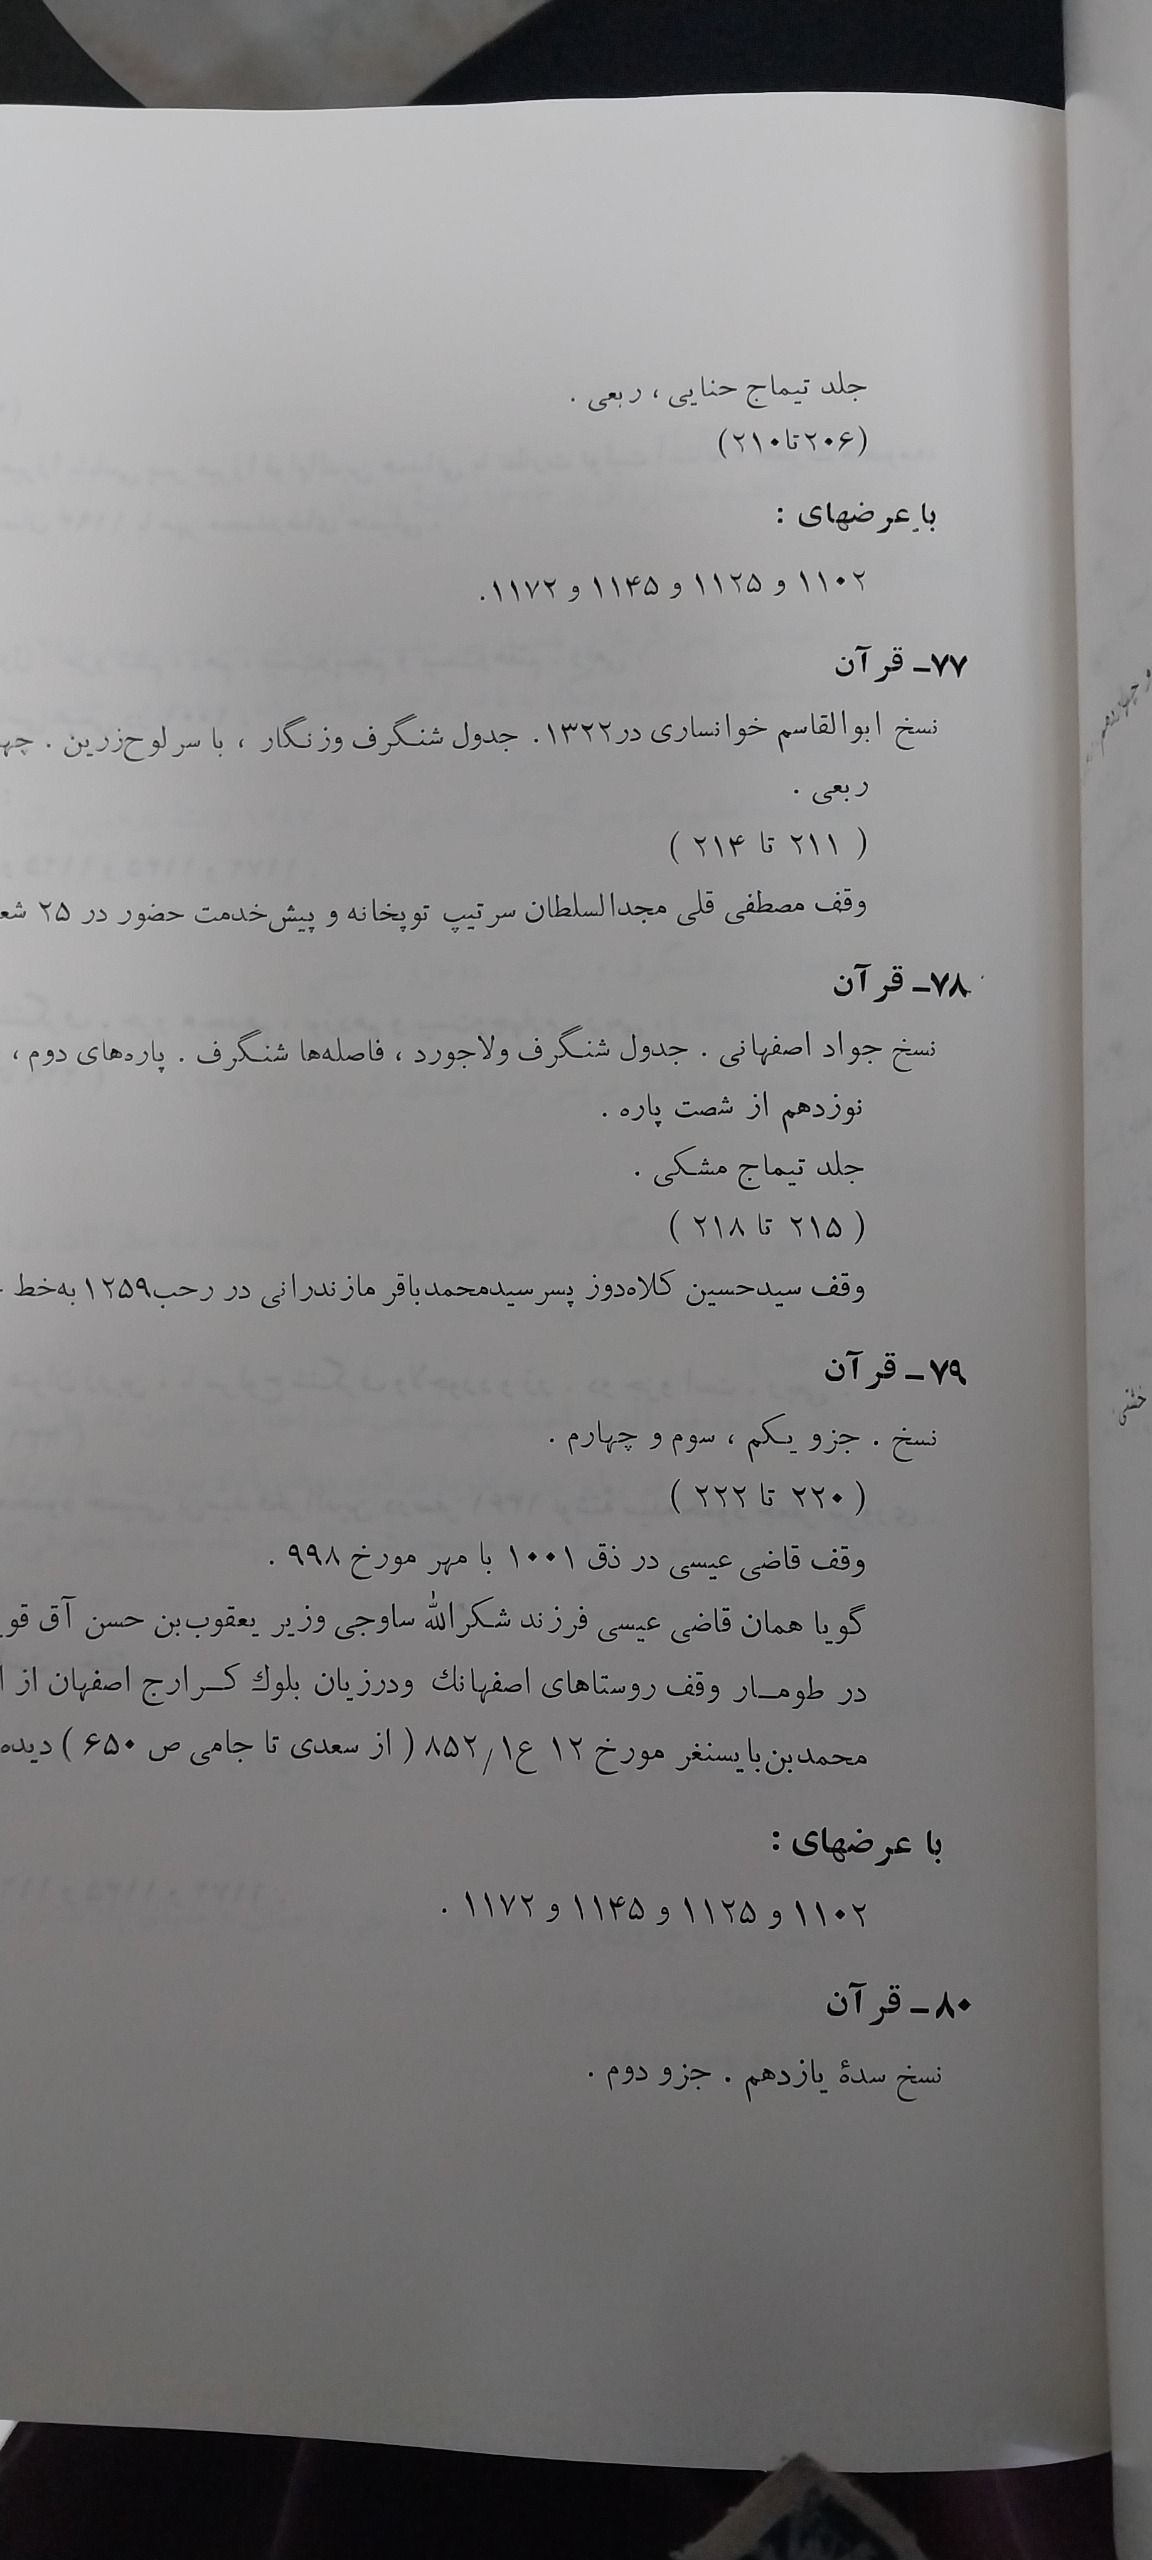 جلد تیماج حنایی ، ربعی .
(۲۰۶تا۲۱۰)
با عرضهای :
۱۱۰۲ و ۱۱۲۵ و ۱۱۴۵ و ۱۱۷۲.
۷۷ـ قرآن
نسخ ابوالقاسم خوانساری در۱۳۲۲. جدول شنگرف وزنگار ، با سرلوح‌زرین .
ربعی .
( ۲۱۱ تا ۲۱۴ )
وقف مصطفی قلی مجدالسلطان سرتیپ توپخانه و پیش‌خدمت حضور در ۲۵
۷۸ـ قرآن
نسخ جواد اصفهانی . جدول شنگرف ولاجورد ، فاصله‌ها شنگرف . پاره‌های دوم ،
نوزدهم از شصت پاره .
جلد تیماج مشکی .
( ۲۱۵ تا ۲۱۸ )
وقف سیدحسین کلاه‌دوز پسرسیدمحمدباقر مازندرانی در رحب۱۲۵۹ به‌خط
۷۹ـ قرآن
نسخ . جزو یکم ، سوم و چهارم .
( ۲۲۰ تا ۲۲۲ )
وقف قاضی عیسی در ذق ۱۰۰۱ با مهر مورخ ۹۹۸ .
گویا همان قاضی عیسی فرزند شکرالله ساوجی وزیر یعقوب‌بن حسن آق
در طومـار وقف روستاهای اصفهانك ودرزیان بلوك کـرارج اصفهان از
محمدبن‌بایسنغر مورخ ۱۲ ع۸۵۲/۱ ( از سعدی تا جامی ص ۶۵۰ ) دیده
با عرضهای :
۱۱۰۲ و ۱۱۲۵ و ۱۱۴۵ و ۱۱۷۲ .
۸۰ـ قرآن
نسخ سدهٔ یازدهم . جزو دوم .